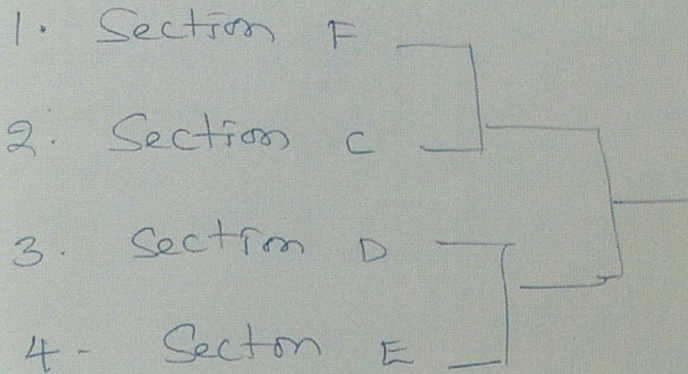 1. Section F
2. Section C
3. Section D
4- Secton E